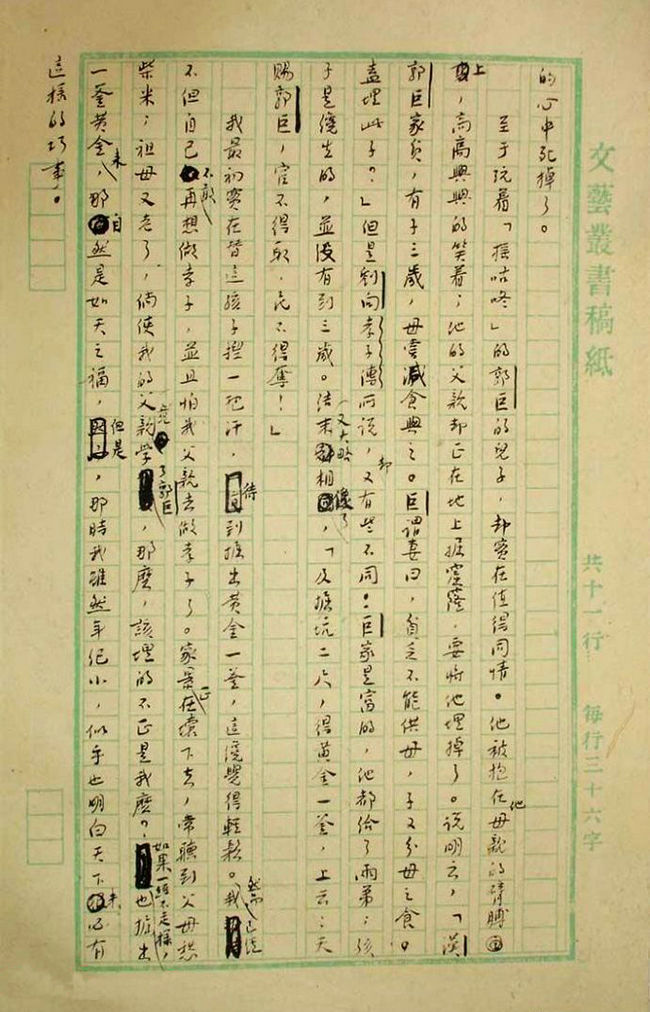 文藝叢書稿紙
共十一行　每行三十六字
的心中死掉了。
至于玩着「搖咕咚」的郭巨的兒子，却實在值得同情。他被抱在他母親的臂膊
上，高高興興的笑着；他的父親却正在地上掘窟窿，要將他埋掉了。說明云，「漢
郭巨家貧，有子三歲，母嘗減食與之。巨謂妻曰，貧乏不能供母，子又分母之食。
盍埋此子？」但是劉向孝子傳所說，却又有些不同：巨家是富的，他都給了兩弟；孩
子是纔生的，並沒有到三歲。結末又大略相像了，「及掘坑二尺，得黃金一釜，上云：天
賜郭巨，官不得取，民不得奪！」
我最初實在替這孩子捏一把汗，待到掘出黃金一釜，這纔覺得輕鬆。然而我已經
不但自己不敢再想做孝子，並且怕我父親去做孝子了。家景正在壞下去，常聽到父母愁
柴米；祖母又老了，倘使我的父親竟學了郭巨，那麼，該埋的不正是我麼？如果一絲不走樣，也掘出
一釜黃金來，那自然是如天之福，但是，那時我雖然年紀小，似乎也明白天下未必有
這樣的巧事。